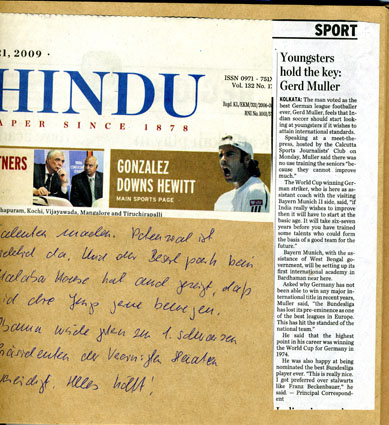 SPORT
21, 2009 ·
ISSN 0971 - 751X
Vol. 132 No. 1
HINDU
APER SINCE 1878
TNERS
GONZALEZ
DOWNS HEWITT
MAIN SPORTS PAGE
thapuram, Kochi, Vijayawada, Mangalore and Tiruchirapalli
Youngsters
hold the key:
Gerd Muller
KOLKATA: The man voted as the
best German league footballer
ever, Gerd Muller, feels that Indian
soccer should start looking
at youngsters if it wishes to
attain international standards.
Speaking at a meet-the-
press, hosted by the Calcutta
Sports Journalists' Club on
Monday, Muller said there was
no use training the seniors "be-
cause they cannot improve
much."
The World Cup winning German
striker, who is here as assistant
coach with the visiting
Bayern Munich II side, said, "if
India really wishes to improve
then it will have to start at the
basic age. It will take six-seven
years before you have some
talents who could form
the basis of a good team for the
future."
Bayern Munich, with the assistance
of West Bengal government,
will be setting up its
first international academy in
Bardhaman near here.
Asked why Germany has not
been able to win any major international
title in recent years,
Muller said, "the Bundesliga
has lost its pre-eminence as one
of the best leagues in Europe.
This has hit the standard of the
national team."
He said that the highest
point in his career was winning
the World Cup for Germany in
1974.
He was also happy at being
nominated the best Bundesliga
player ever. "This is really nice.
I got preferred over stalwarts
like Franz Beckenbauer," he
said. — Principal Correspondent
Talenten machen. Potenzial ist
da, Und der Best
hat auch gezeigt, daß
die Jungs gerne bewegen.
Obama würde gestern zum 1. schwarzen
Präsidenten der Vereinigten Staaten
vereidigt. Alles hofft!